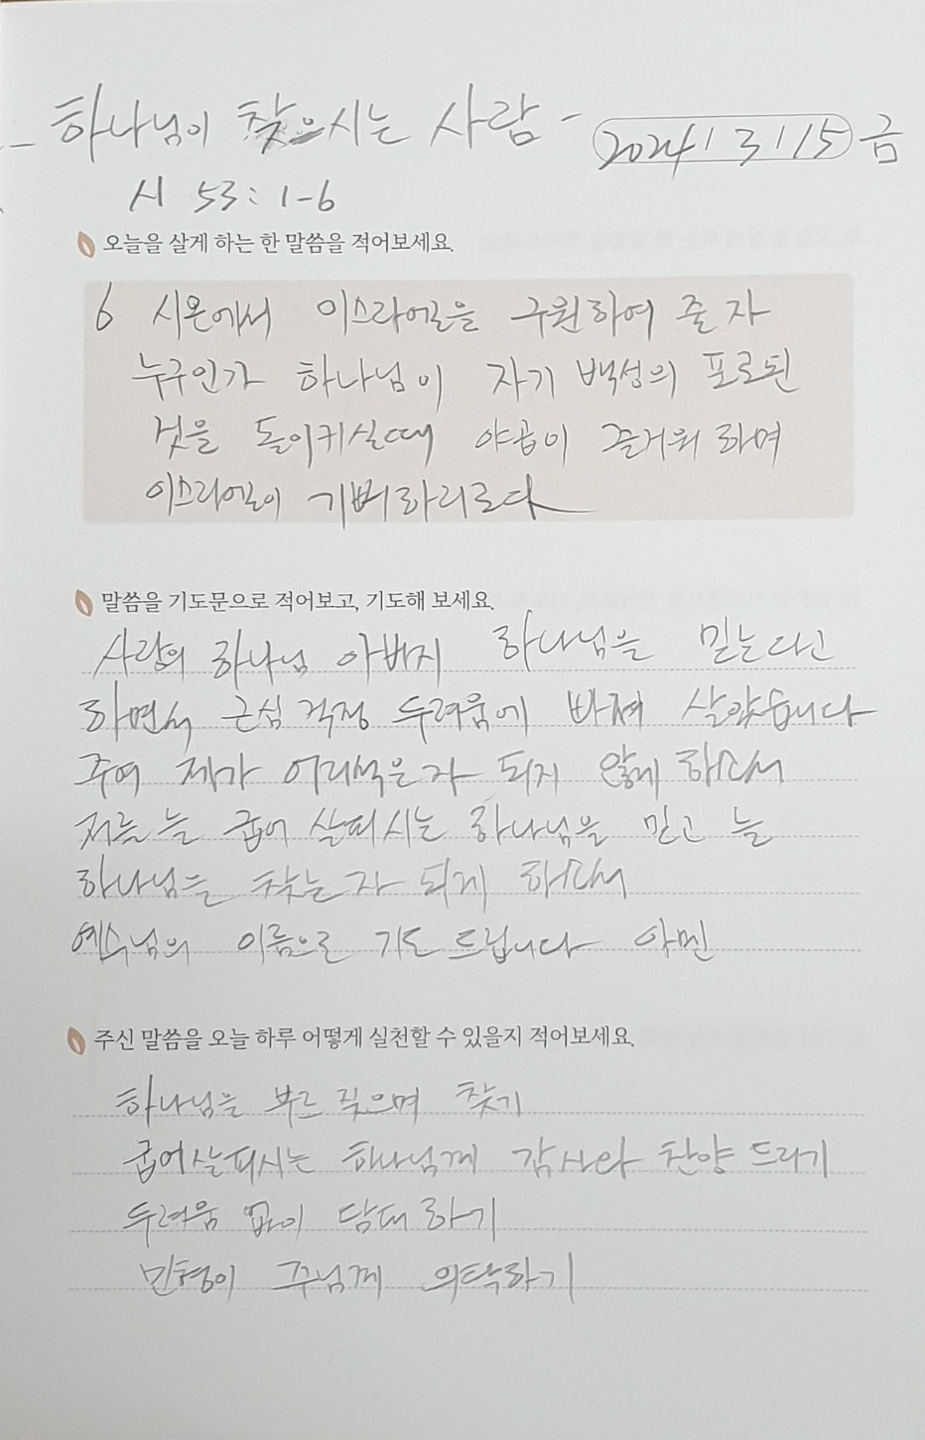 - 하나님이 찾으시는 사람 - 2024 / 3 / 15 금
시 53: 1-6
오늘을 살게 하는 한 말씀을 적어보세요.
6 시온에서 이스라엘을 구원하여 줄 자
누구인가 하나님이 자기 백성의 포로된
것을 돌이키실때 야곱이 즐거워 하며
이스라엘이 기뻐하리로다
말씀을 기도문으로 적어보고, 기도해 보세요.
사랑의 하나님 아버지 하나님을 믿는다고
하면서 근심 걱정 두려움에 빠져 살았습니다
주여 제가 어리석은자 되지 않게 하소서
저를 늘 굽어 살피시는 하나님을 믿고 늘
하나님을 찾는 자 되게 하소서
예수님의 이름으로 기도 드립니다 아멘
주신 말씀을 오늘 하루 어떻게 실천할 수 있을지 적어보세요.
하나님을 부르 짖으며 찾기
굽어살피시는 하나님께 감사와 찬양 드리기
두려움 없이 담대하기
민형이 주님께 의탁하기